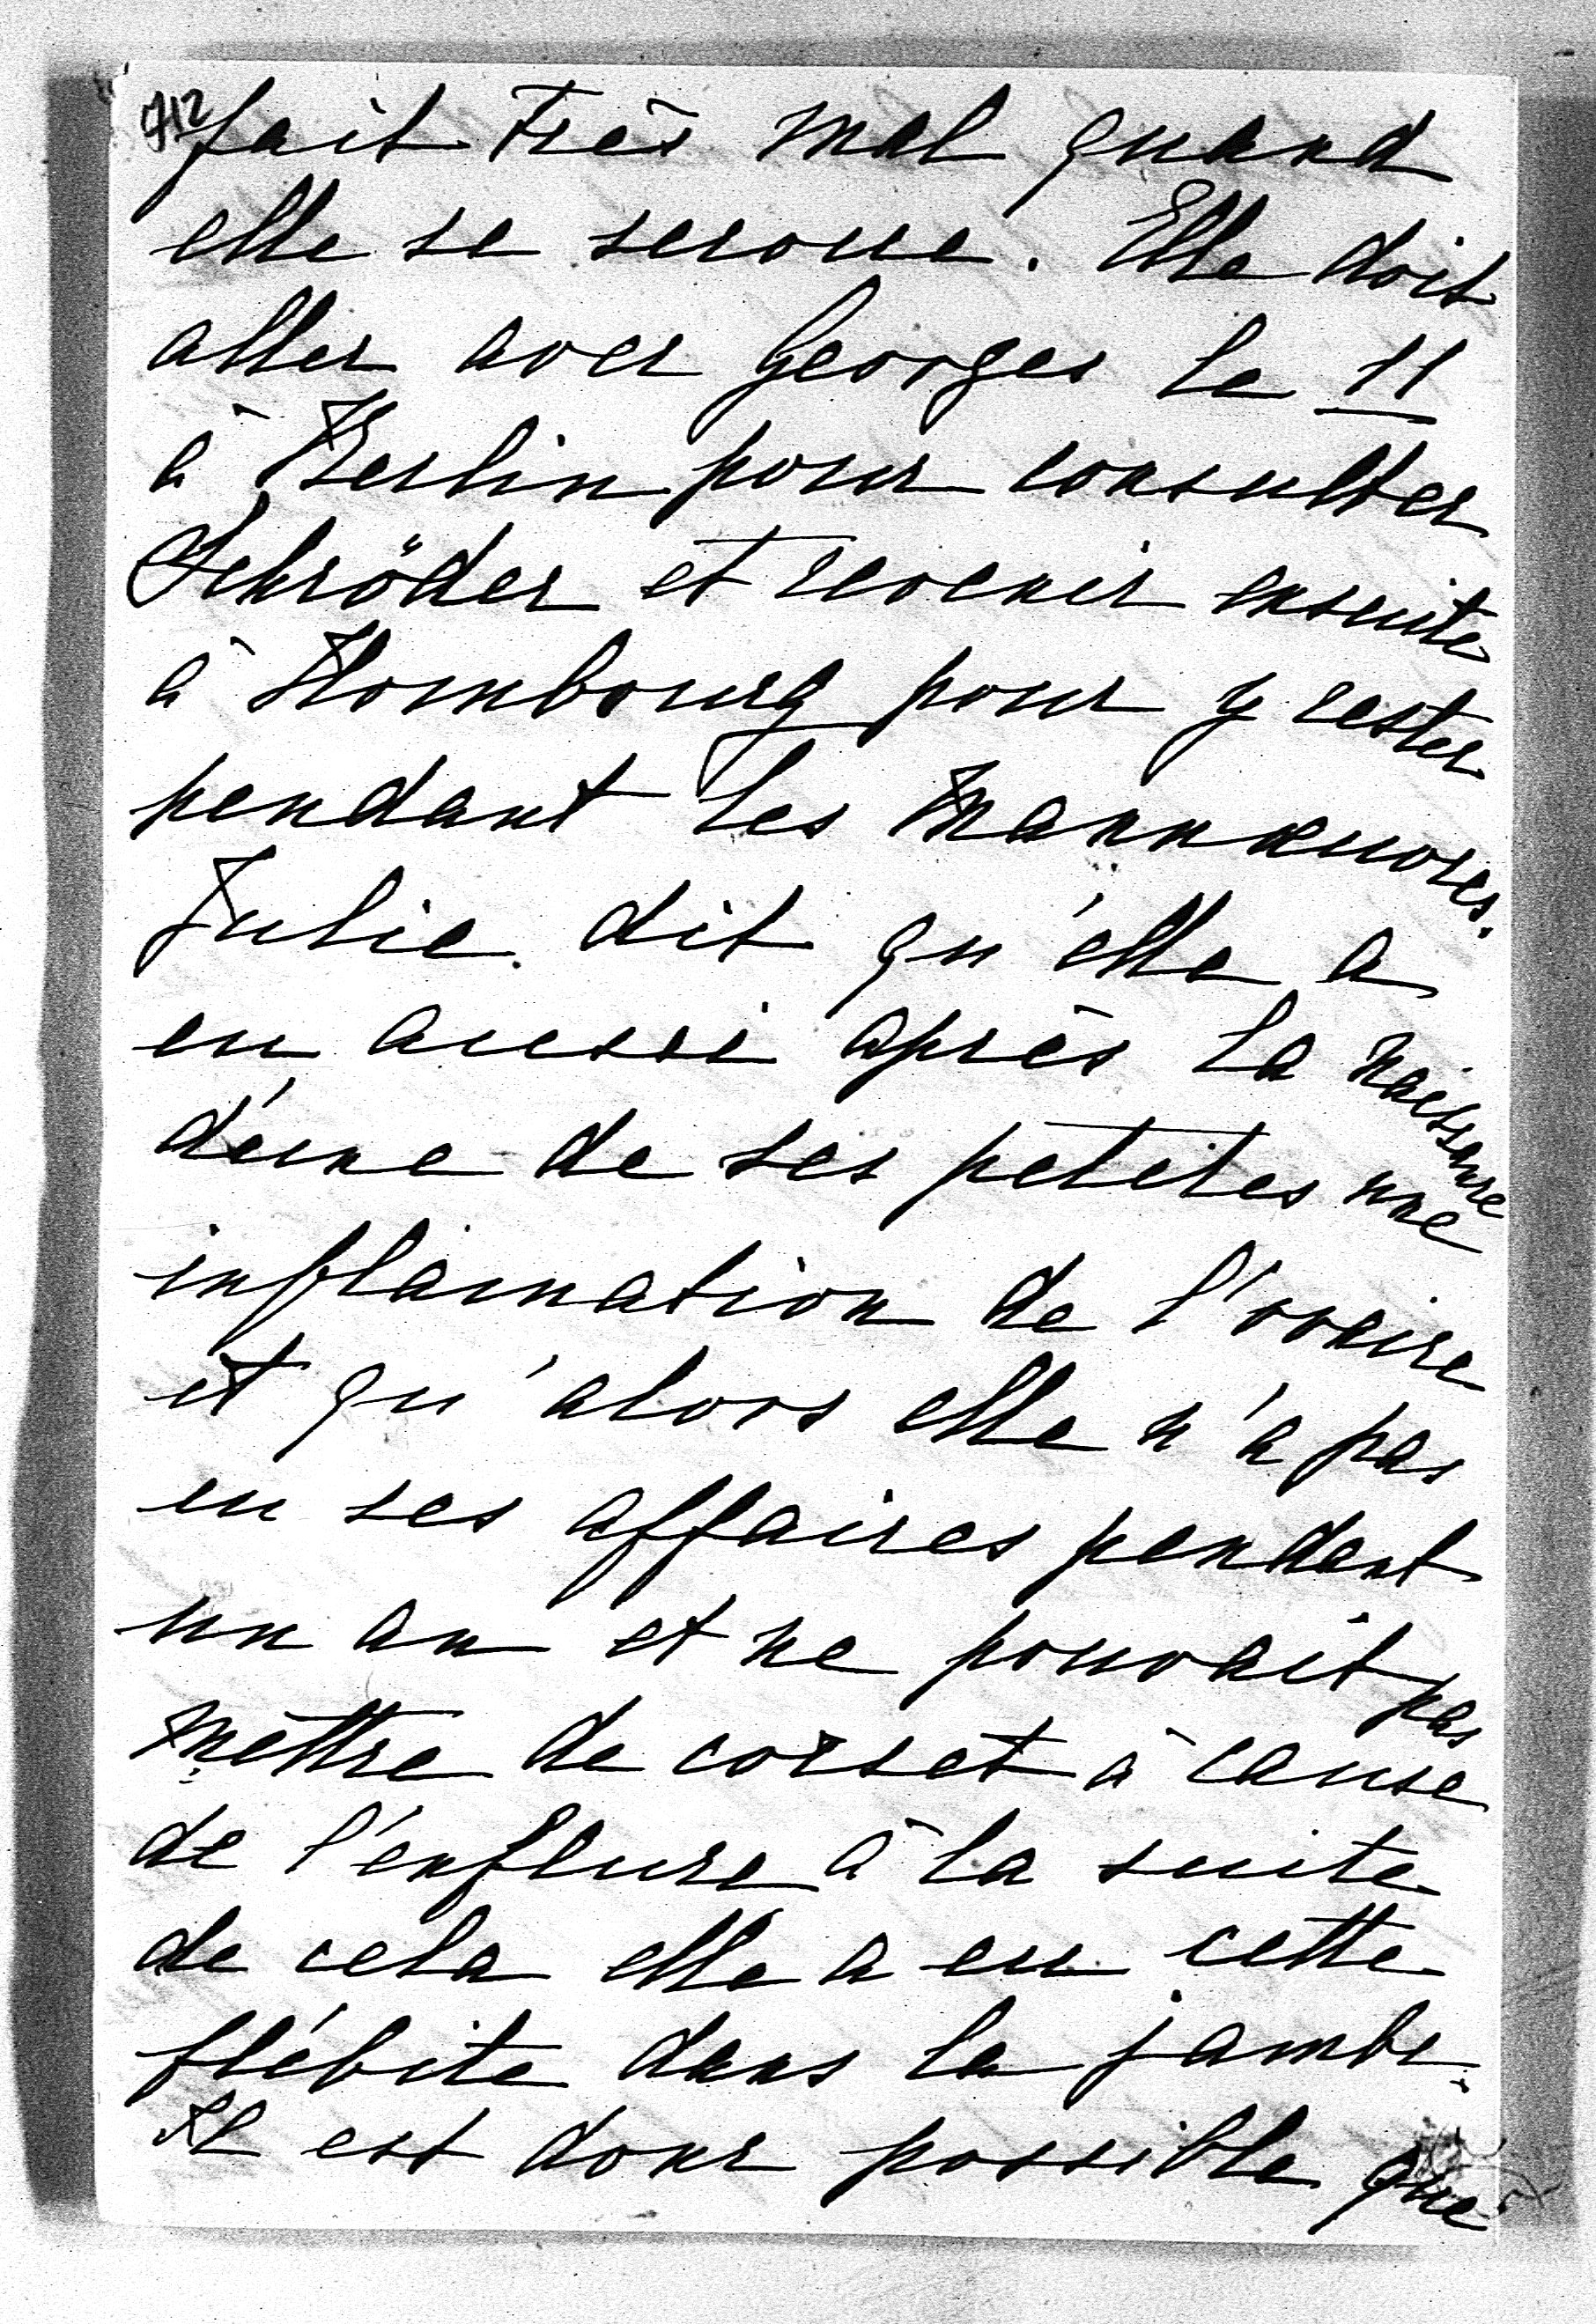 712
fait très mal quand
elle se secoue. Elle doit
aller avec Georges le 11
à Berlin pour consulter
Schröder et revenir ensuite
à Hombourg pour y rester
pendant les mannœuvres.
Julie dit qu'elle a
eu aussi après la naissance
d'une de ses petites une
inflamation de l'ovaire
et qu'alors elle n'a pas
eu ses affaires pendant
un an et ne pouvait pas
mettre de corset à cause
de l'enflure à la suite
de cela elle a eu cette
flébite dans la jambe.
Il est donc possible que